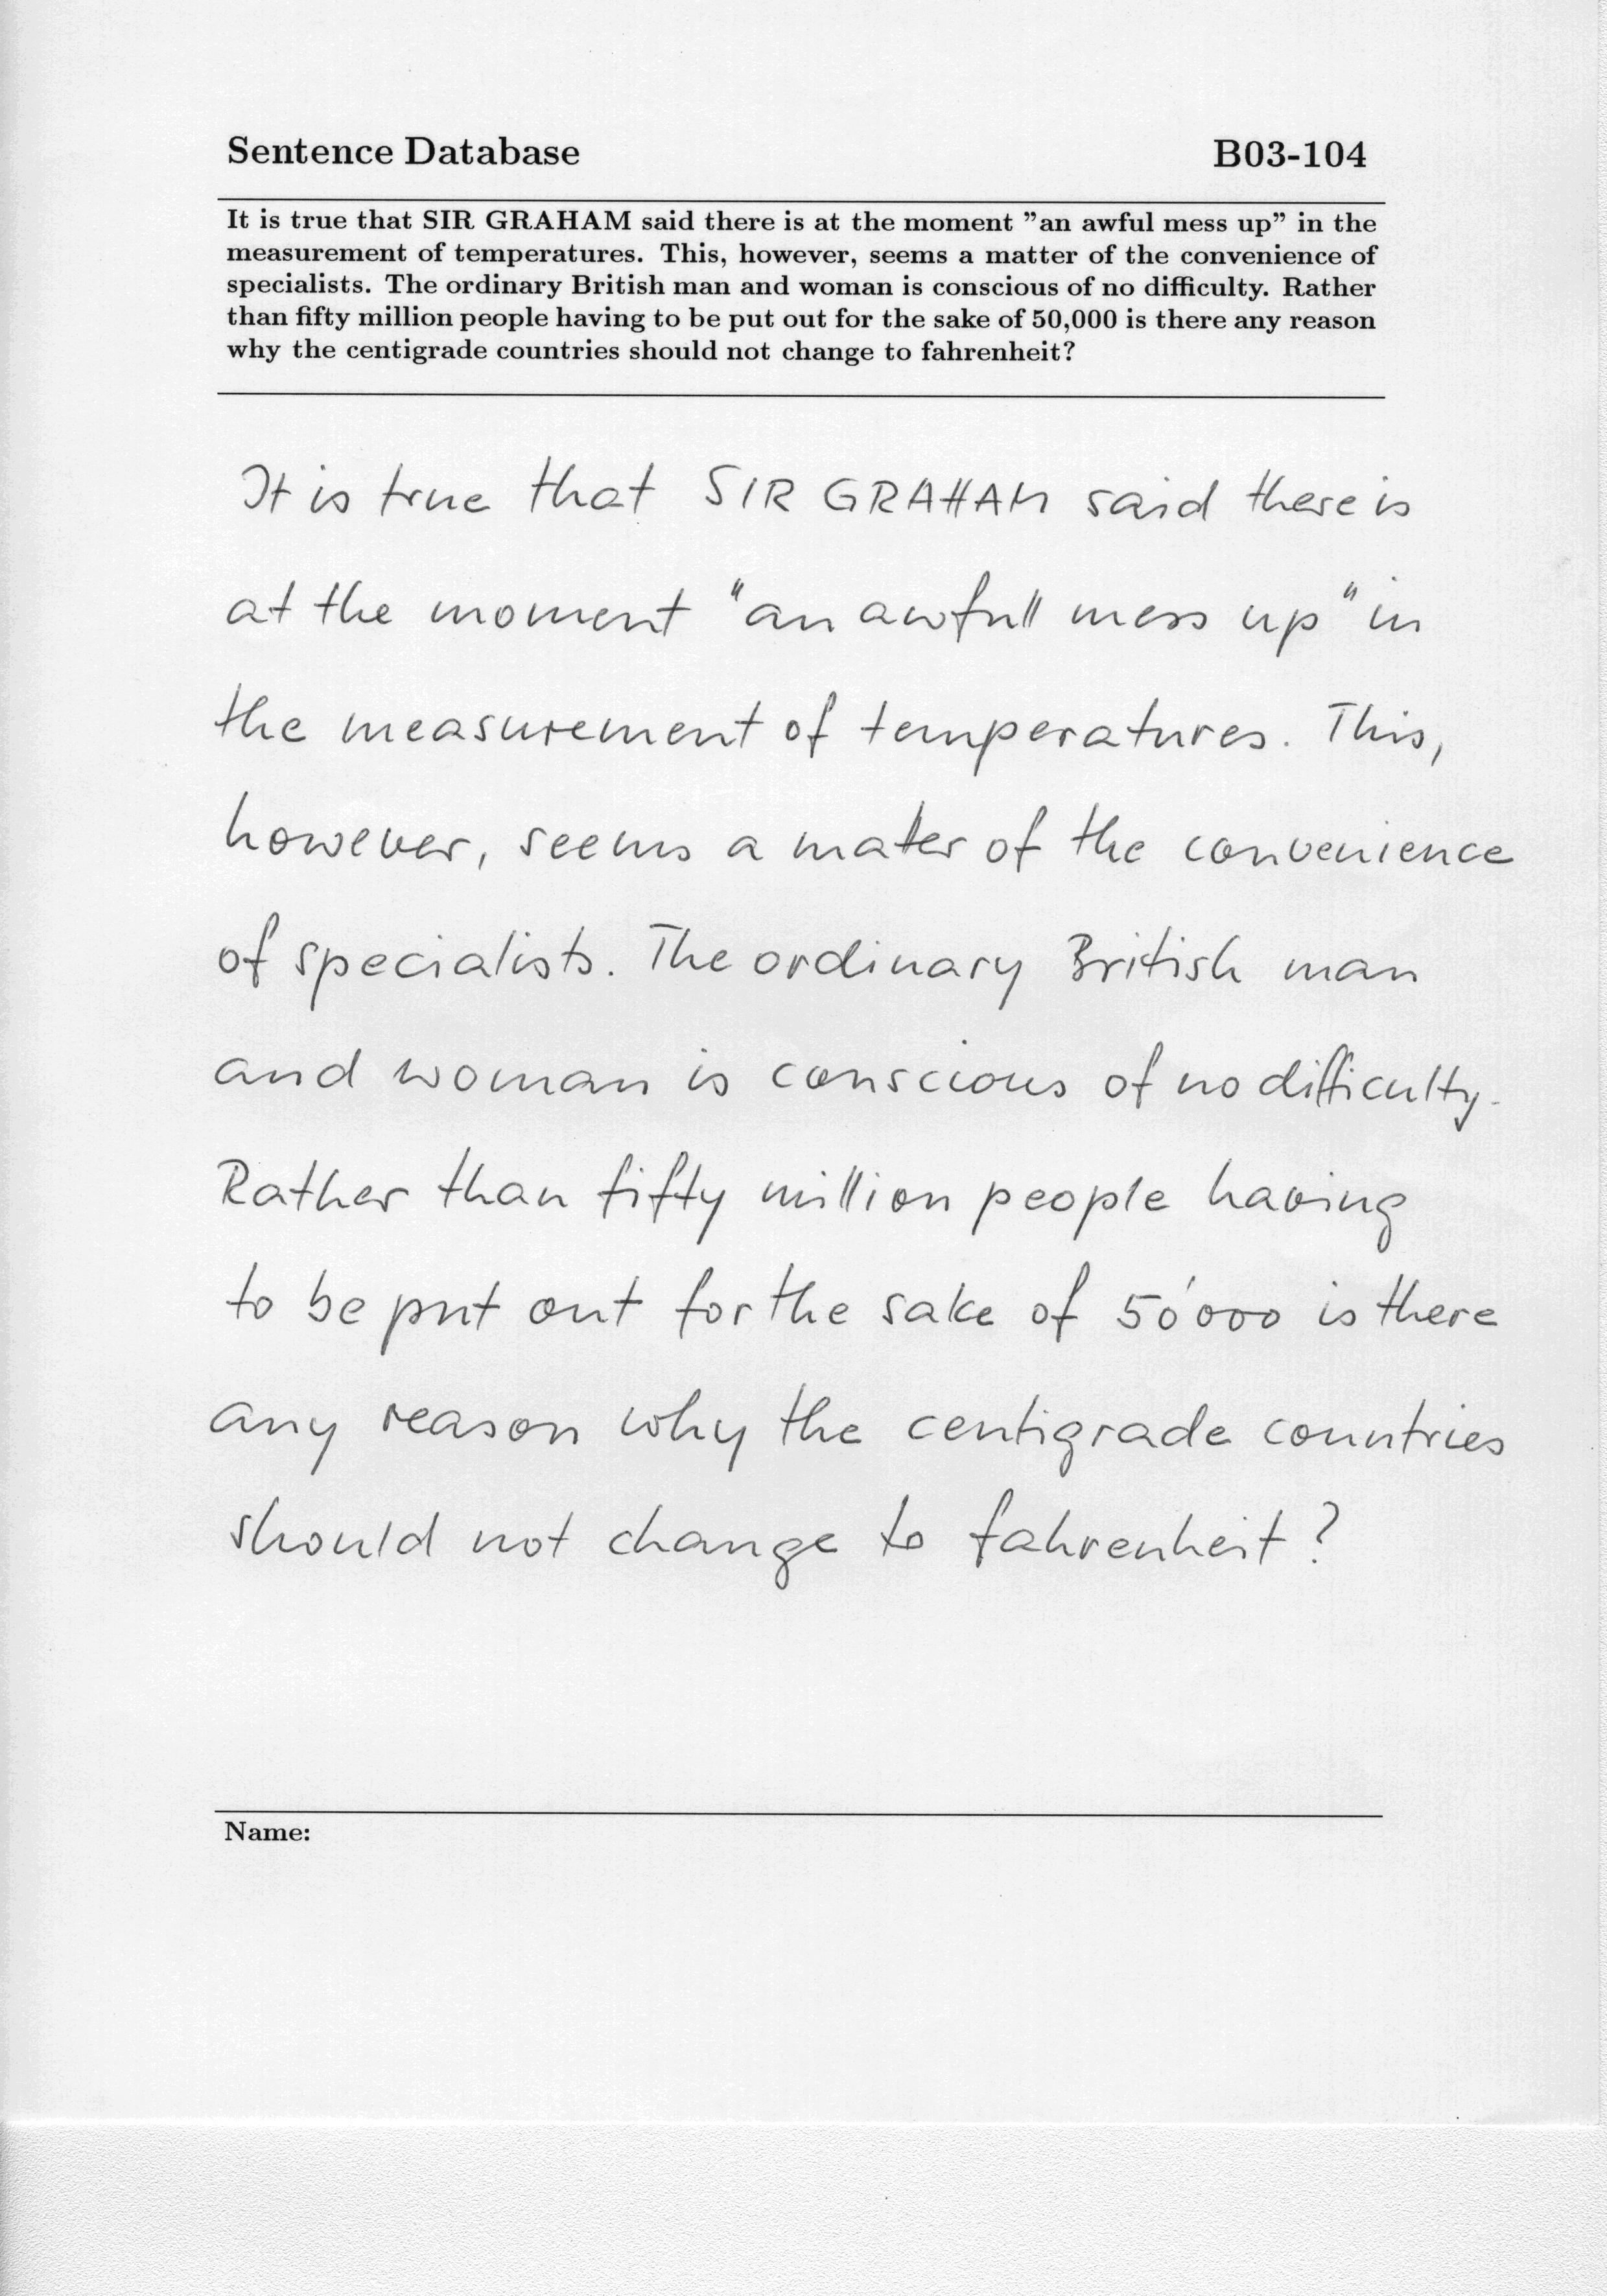 Sentence Database B03-104
It is true that SIR GRAHAM said there is at the moment ”an awful mess up” in the
measurement of temperatures. This, however, seems a matter of the convenience of
specialists. The ordinary British man and woman is conscious of no difficulty. Rather
than fifty million people having to be put out for the sake of 50,000 is there any reason
why the centigrade countries should not change to fahrenheit?
It is true that SIR GRAHAM said there is
at the moment "an awfull mess up" in
the measurement of temperatures. This,
however, seems a matter of the convenience
of specialists. The ordinary British man
and woman is conscious of no difficulty.
Rather than fifty million people having
to be put out for the sake of 50'000 is there
any reason why the centigrade countries
should not change to fahrenheit?
Name: